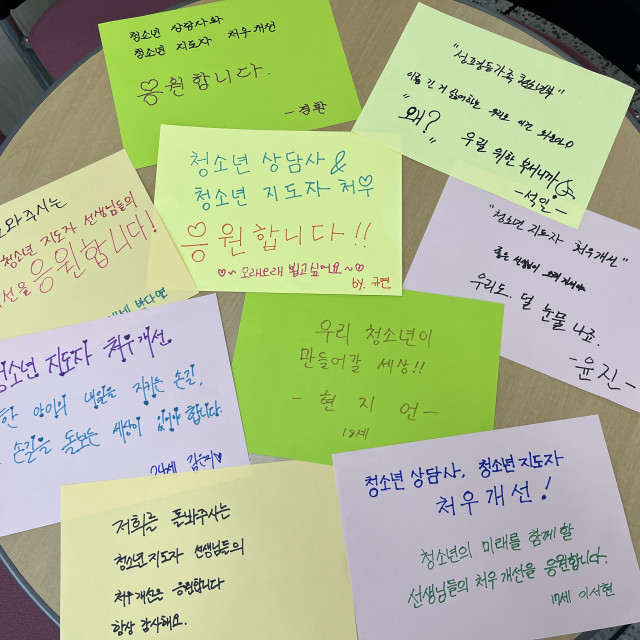 청소년 상담사와
청소년 지도자 처우개선
응원합니다.
- 경환
"성평등가족 청소년부"
"왜?"
우릴 위한 부서니까
- 석인 -
청소년 상담사 &
청소년 지도자 처우
응원합니다!!
오래오래 뵙고싶어요~
by. 규연
와주시는
청소년 지도자 선생님들의
개선을 응원합니다!
"청소년 지도자 처우개선"
좋은 선생님이 오래 계셔야
우리도. 덜 눈물 나죠.
- 윤진 -
청소년 지도자 처우개선
한 아이의 내일을 지키는 손길,
손길을 돌보는 세상이 있어야 합니다.
우리 청소년이
만들어갈 세상!!
- 현지언 -
18세
저희를 돌봐주시는
청소년지도자 선생님들의
처우개선을 응원합니다
항상 감사해요.
청소년 상담사, 청소년 지도자
처우개선!
청소년의 미래를 함께 할
선생님들의 처우개선을 응원합니다.
17세 이서현